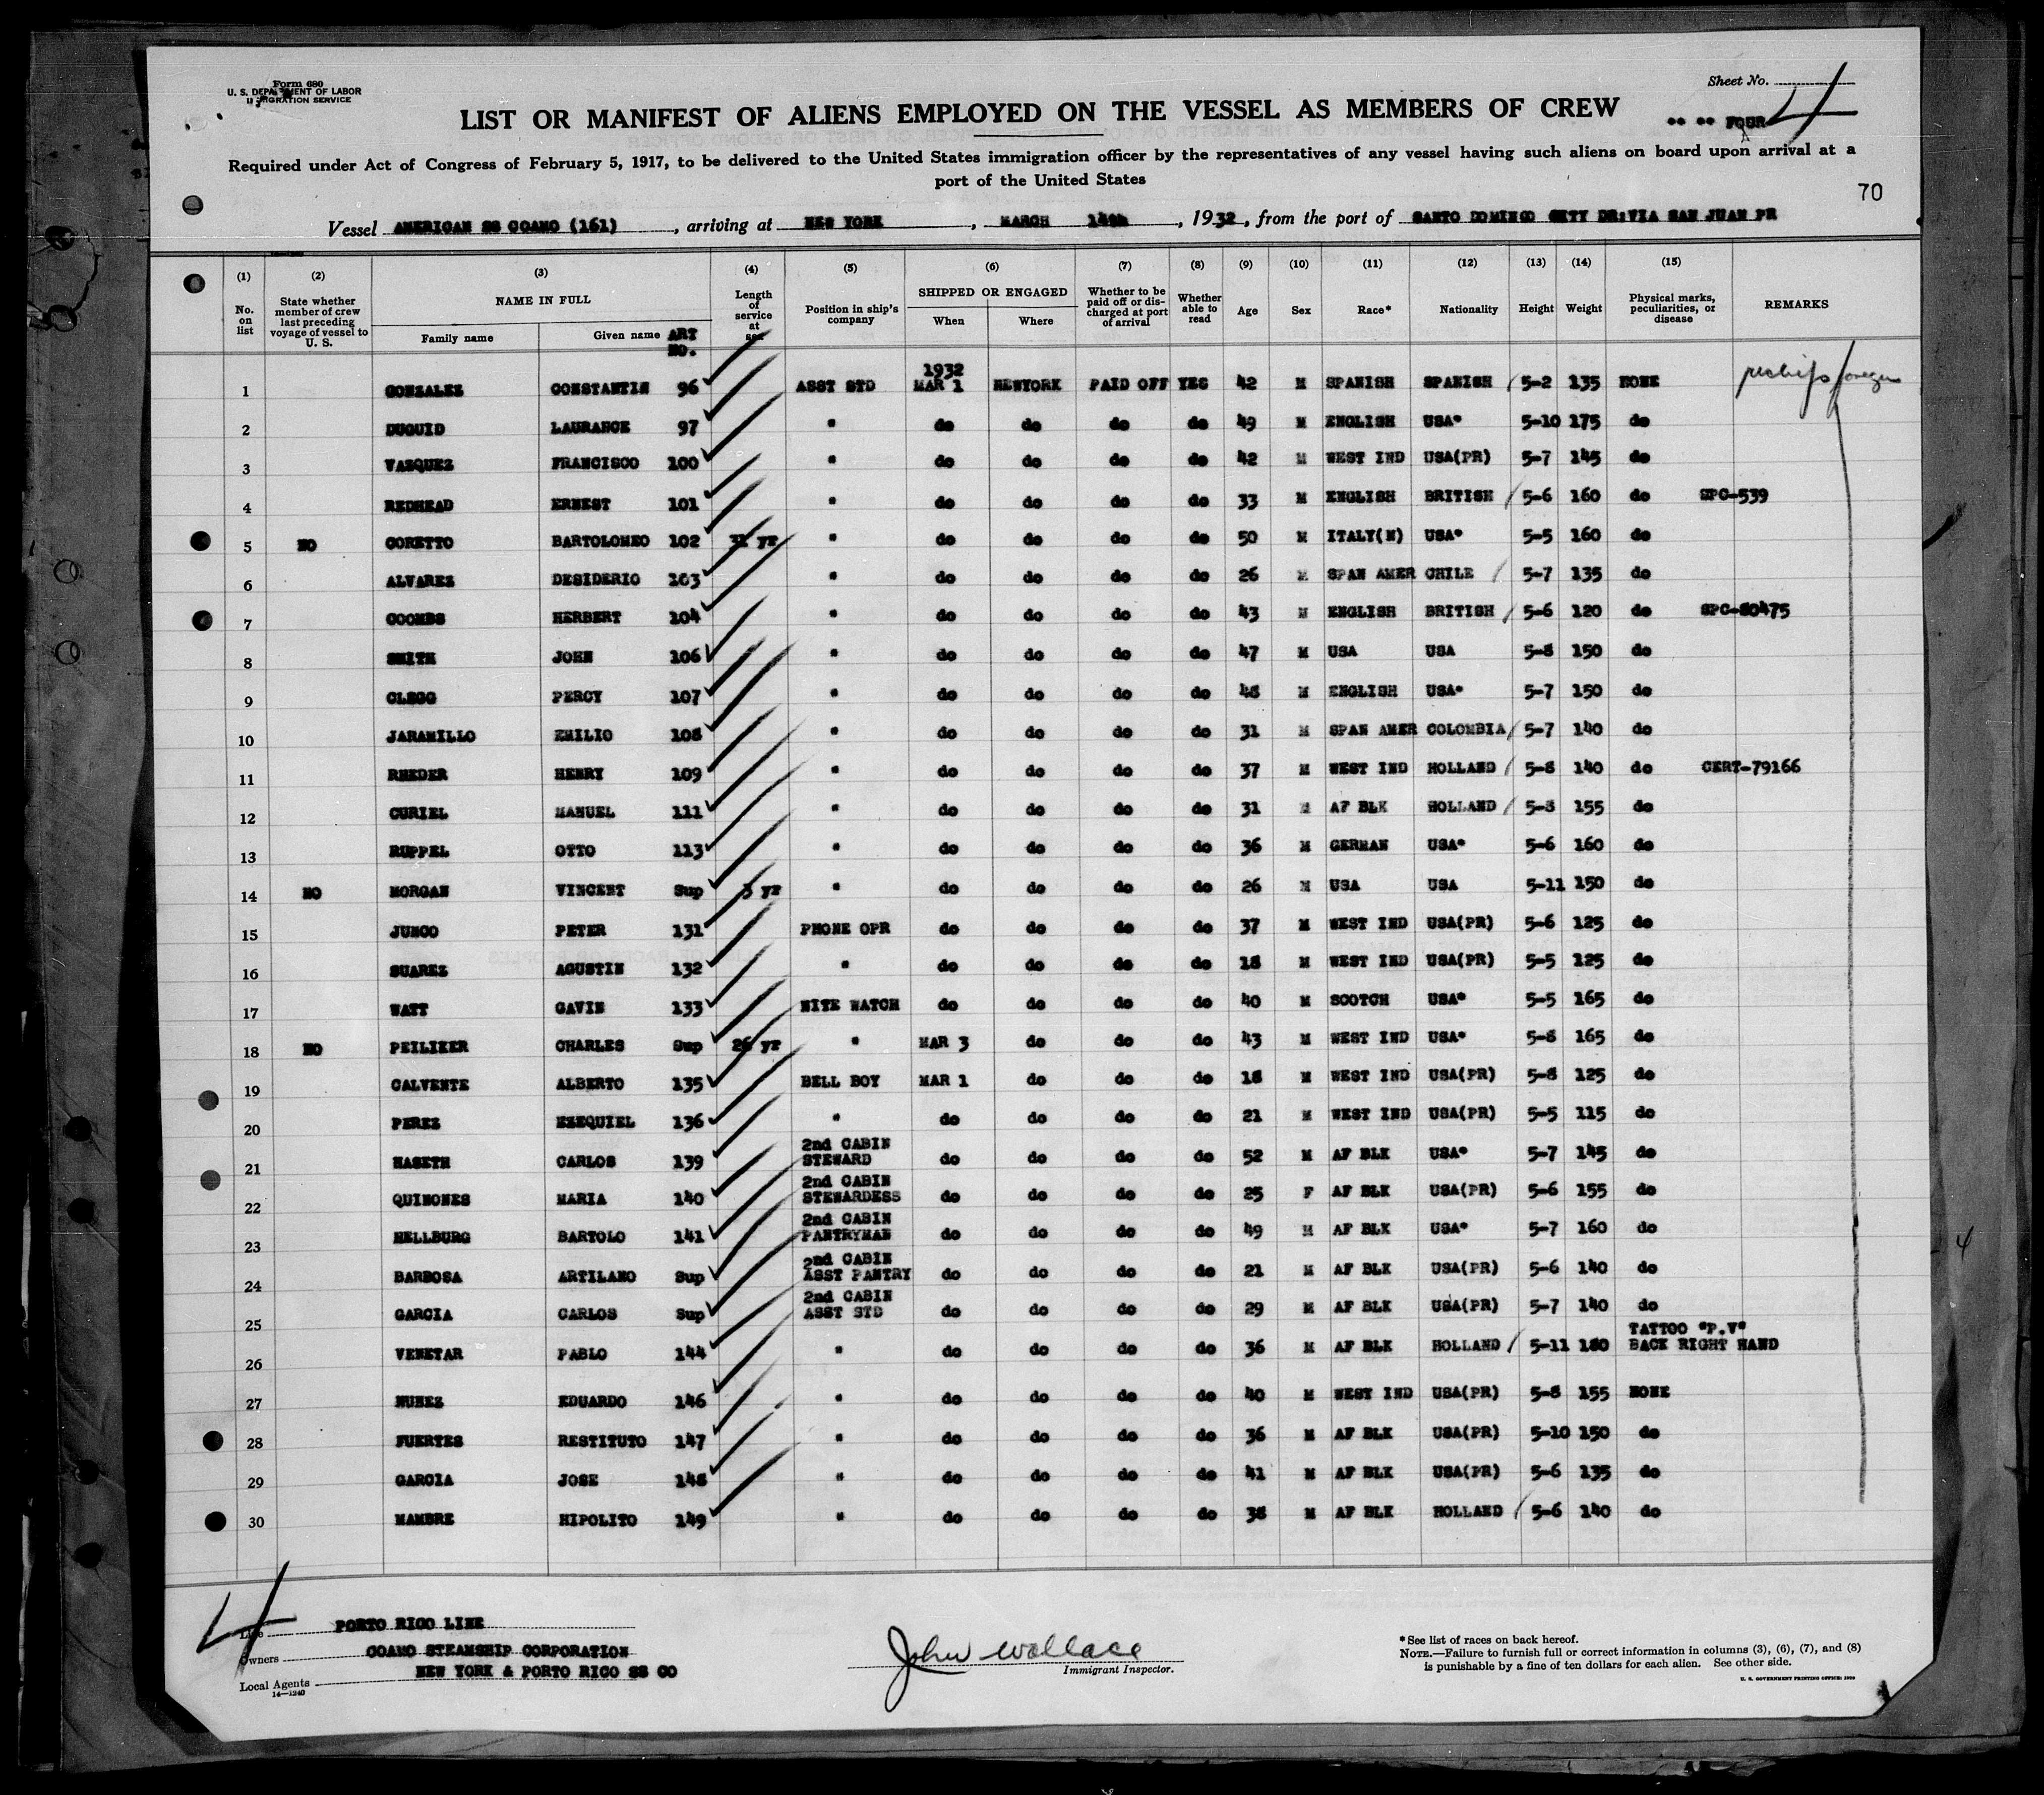 Form 680
U. S. DEPARTMENT OF LABOR
IMMIGRATION SERVICE
Sheet No.
LIST OR MANIFEST OF ALIENS EMPLOYED ON THE VESSEL AS MEMBERS OF CREW
FOUR 4
Required under Act of Congress of February 5, 1917, to be delivered to the United States immigration officer by the representatives of any vessel having such aliens on board upon arrival at a
port of the United States
70
Vessel AMERICAN SS COAMO (161), arriving at NEW YORK, MARCH 14th, 1932, from the port of SANTO DOMINGO CITY DR:VIA SAN JUAN PR
(1) (2) (3) (4) (5) (6) (7) (8) (9) (10) (11) (12) (13) (14) (15)
No. on list
State whether member of crew last preceding voyage of vessel to U. S.
NAME IN FULL
Family name
Given name
ART NO.
Length of service at sea
Position in ship's company
SHIPPED OR ENGAGED
When
Where
Whether to be paid off or discharged at port of arrival
Whether able to read
Age
Sex
Race*
Nationality
Height
Weight
Physical marks, peculiarities, or disease
REMARKS
1 GONZALEZ CONSTANTIN 96 ASST STD 1932 MAR 1 NEWYORK PAID OFF YES 42 M SPANISH SPANISH 5-2 135 NONE
2 DUGUID LAURANCE 97 " do do do do 49 M ENGLISH USA* 5-10 175 do
3 VAZQUEZ FRANCISCO 100 " do do do do 42 M WEST IND USA(PR) 5-7 145 do
4 REDHEAD ERNEST 101 " do do do do 33 M ENGLISH BRITISH 5-6 160 do SPC-539
5 NO CORETTO BARTOLOMEO 102 yr " do do do do 50 M ITALY(N) USA* 5-5 160 do
6 ALVAREZ DESIDERIO 103 " do do do do 26 M SPAN AMER CHILE 5-7 135 do
7 COOMBS HERBERT 104 " do do do do 43 M ENGLISH BRITISH 5-6 120 do SPC-80475
8 SMITH JOHN 106 " do do do do 47 M USA USA 5-8 150 do
9 CLEGG PERCY 107 " do do do do 48 M ENGLISH USA* 5-7 150 do
10 JARAMILLO EMILIO 108 " do do do do 31 M SPAN AMER COLOMBIA 5-7 140 do
11 RHEDER HENRY 109 " do do do do 37 M WEST IND HOLLAND 5-8 140 do CERT-79166
12 CURIEL MANUEL 111 " do do do do 31 M AF BLK HOLLAND 5-8 155 do
13 RUPPEL OTTO 113 " do do do do 36 M GERMAN USA* 5-6 160 do
14 NO MORGAN VINCENT Sup 3 yr " do do do do 26 M USA USA 5-11 150 do
15 JUNCO PETER 131 PHONE OPR do do do do 37 M WEST IND USA(PR) 5-6 125 do
16 SUAREZ AGUSTIN 132 " do do do do 18 M WEST IND USA(PR) 5-5 125 do
17 WATT GAVIN 133 NITE WATCH do do do do 40 M SCOTCH USA* 5-5 165 do
18 NO PEILIKER CHARLES Sup 26 yr " MAR 3 do do do 43 M WEST IND USA* 5-8 165 do
19 CALVENTE ALBERTO 135 BELL BOY MAR 1 do do do 18 M WEST IND USA(PR) 5-8 125 do
20 PEREZ EZEQUIEL 136 " do do do do 21 M WEST IND USA(PR) 5-5 115 do
21 HASETH CARLOS 139 2nd CABIN STEWARD do do do do 52 M AF BLK USA* 5-7 145 do
22 QUINONES MARIA 140 2nd CABIN STEWARDESS do do do do 25 F AF BLK USA(PR) 5-6 155 do
23 HELLBURG BARTOLO 141 2nd CABIN PANTRYMAN do do do do 49 M AF BLK USA* 5-7 160 do
24 BARBOSA ARTILANO Sup 2nd CABIN ASST PANTRY do do do do 21 M AF BLK USA(PR) 5-6 140 do
25 GARCIA CARLOS Sup 2nd CABIN ASST STD do do do do 29 M AF BLK USA(PR) 5-7 140 do
26 VENETAR PABLO 144 " do do do do 36 M AF BLK HOLLAND 5-11 180 TATTOO "P.V" BACK RIGHT HAND
27 NUNEZ EDUARDO 146 " do do do do 40 M WEST IND USA(PR) 5-8 155 NONE
28 FUERTES RESTITUTO 147 " do do do do 36 M AF BLK USA(PR) 5-10 150 do
29 GARCIA JOSE 148 " do do do do 41 M AF BLK USA(PR) 5-6 135 do
30 MAMBRE HIPOLITO 149 " do do do do 38 M AF BLK HOLLAND 5-6 140 do
4
Line PORTO RICO LINE
Owners COAMO STEAMSHIP CORPORATION
Local Agents NEW YORK & PORTO RICO SS CO
14—1240
John Wallace
Immigrant Inspector.
*See list of races on back hereof.
NOTE.—Failure to furnish full or correct information in columns (3), (6), (7), and (8)
is punishable by a fine of ten dollars for each alien. See other side.
U. S. GOVERNMENT PRINTING OFFICE: 1930
4